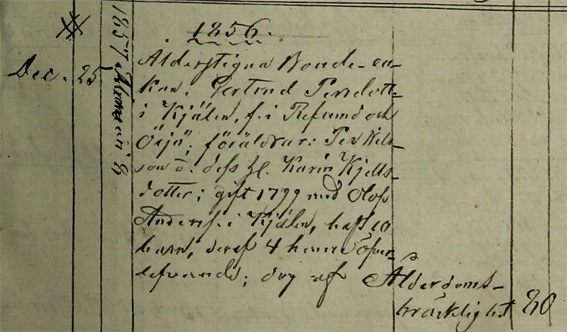 1856.
Dec. 25
1857 Januari 8
Ålderstigna Bonde-en-
kan, Gertrud Persdott.
i Kjälen, f. i Refsund och
Ösjö; föräldrar: Per Nils-
son o. dess h. Karin Kjells-
dotter; gift 1799 med Olof
Anders. i Kjälen, haft 10
barn, deraf 4 henne öfver-
lefvande; dog af Ålderdoms-
bräcklighet 80